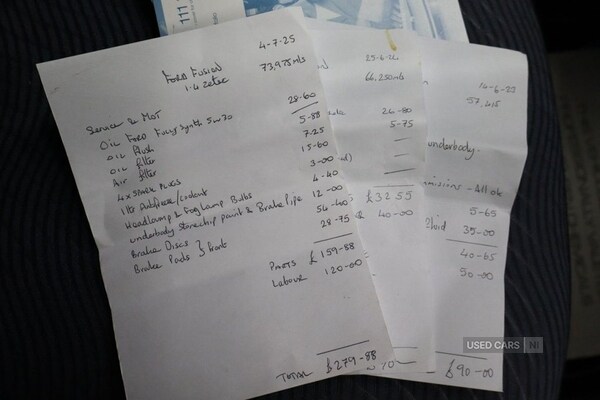 111
4-7-25
Ford Fusion 73,975 mls
1.4 Zetec
Service & MOT
Oil Ford Fully Synth 5w30 28-60
Oil Flush 5-88
Oil Filter 7-25
Air Filter 15-60
4x Spark Plugs
1 ltr Antifreeze/coolant 3-00
Headlamp & Fog Lamp Bulbs 4-40
underbody Stonechip paint & Brake Pipe 12-00
Brake Discs } front 54-40
Brake Pads 28-75
Parts £159-88
Labour 120-00
TOTAL £279-88
25-6-24
66,250 mls
26-80
5-75
£32 55
40-00
14-6-23
57,415
underbody.
emissions - All ok
5-65
fluid 35-00
40-65
50-00
£90-00
USED CARS NI